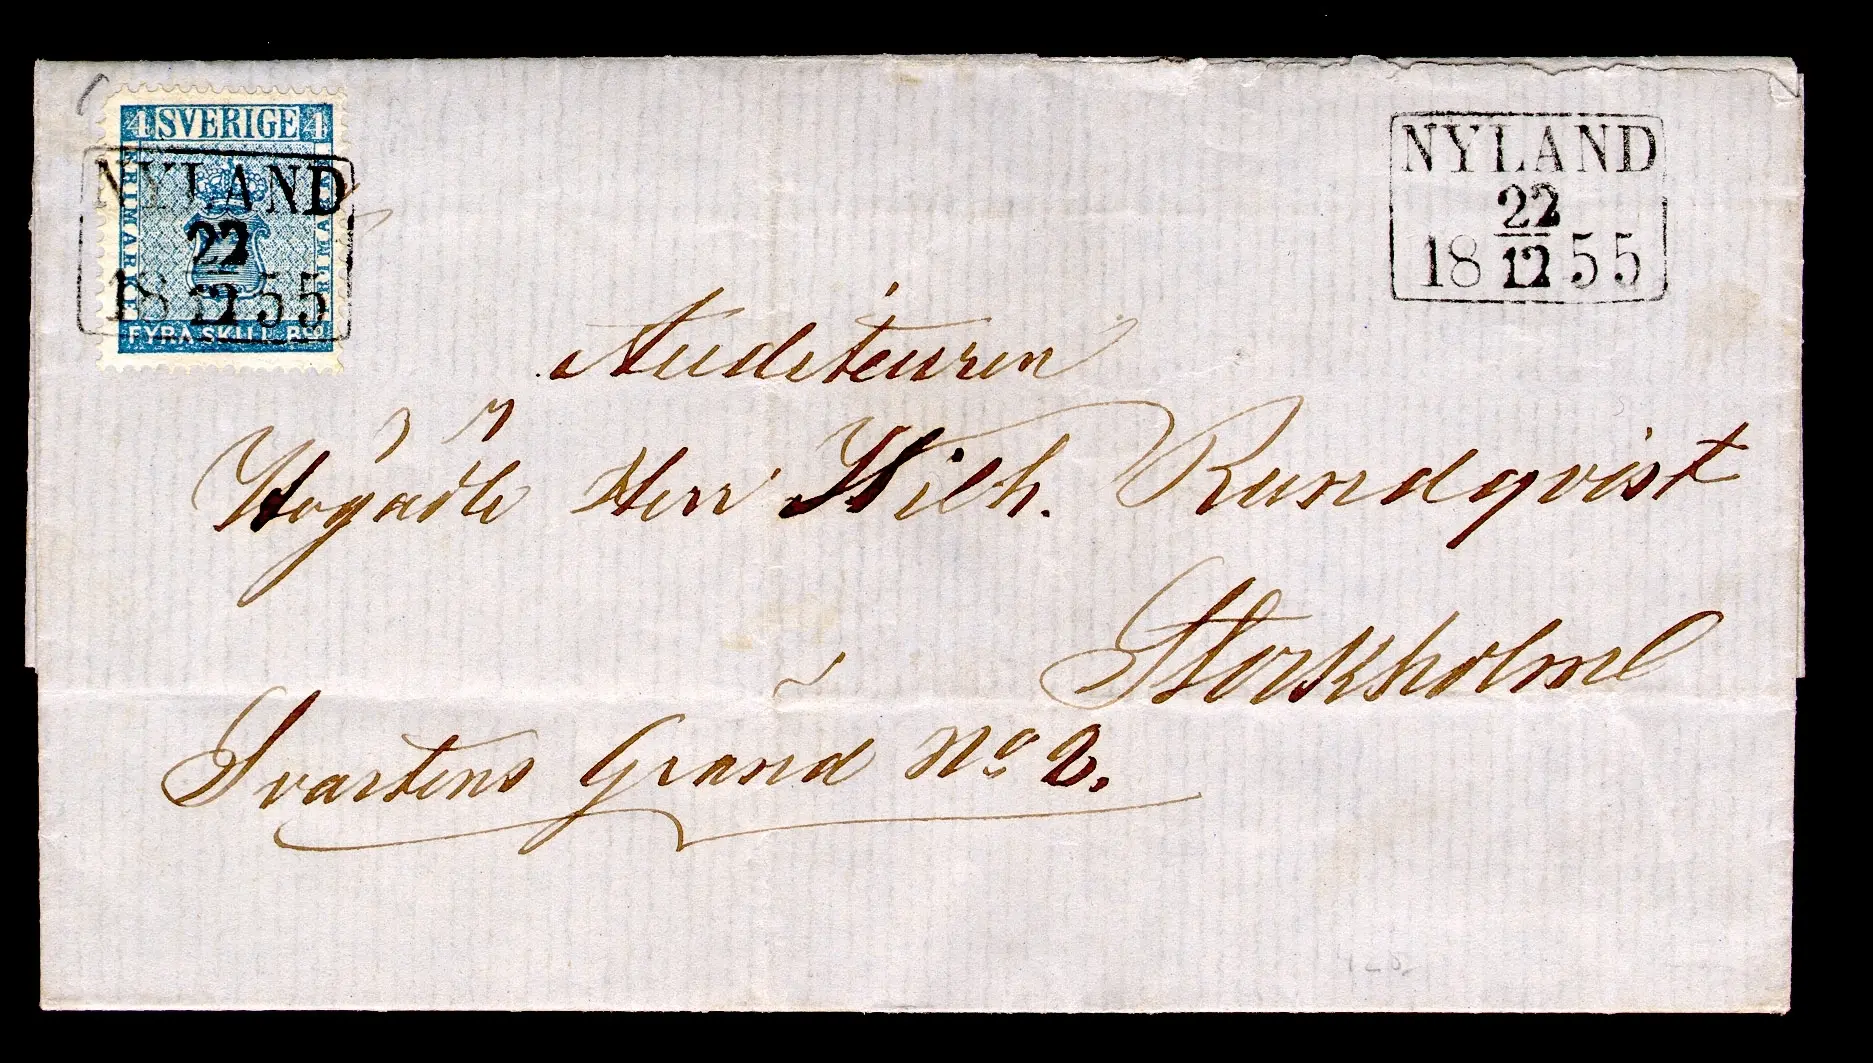 4 SVERIGE 4
FRIMÄRKE
FYRA SKILL. Bco
NYLAND
22
12
18 55
NYLAND
22
12
18 55
Auditeuren
Högädle Herr Wilh. Rundqvist
Stockholm
Svartens Gränd No 2.